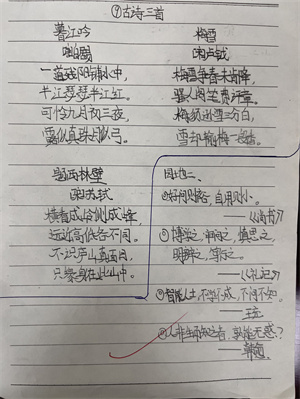 ⑨古诗三首
暮江吟
唐白居易
一道残阳铺水中,
半江瑟瑟半江红。
可怜九月初三夜,
露似真珠月似弓。
雪梅
宋卢钺
梅雪争春未肯降,
骚人阁笔费评章。
梅须逊雪三分白,
雪却输梅一段香。
题西林壁
宋苏轼
横看成岭侧成峰,
远近高低各不同。
不识庐山真面目,
只缘身在此山中。
园地二、
①好问则裕,自用则小。
——《尚书》
②博学之,审问之,慎思之,
明辨之,笃行之。
——《礼记》
③智能之士,不学不成,不问不知。
——王充
④人非生而知之者,孰能无惑?
——韩愈